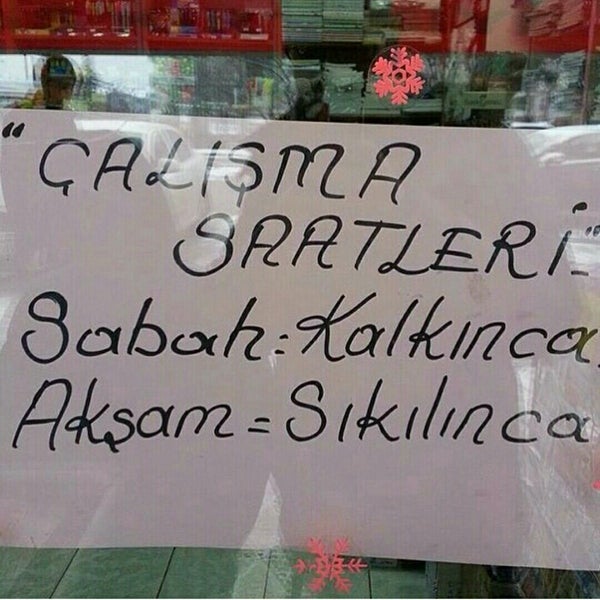 "ÇALIŞMA
SAATLERİ"
Sabah: Kalkınca
Akşam = Sıkılınca